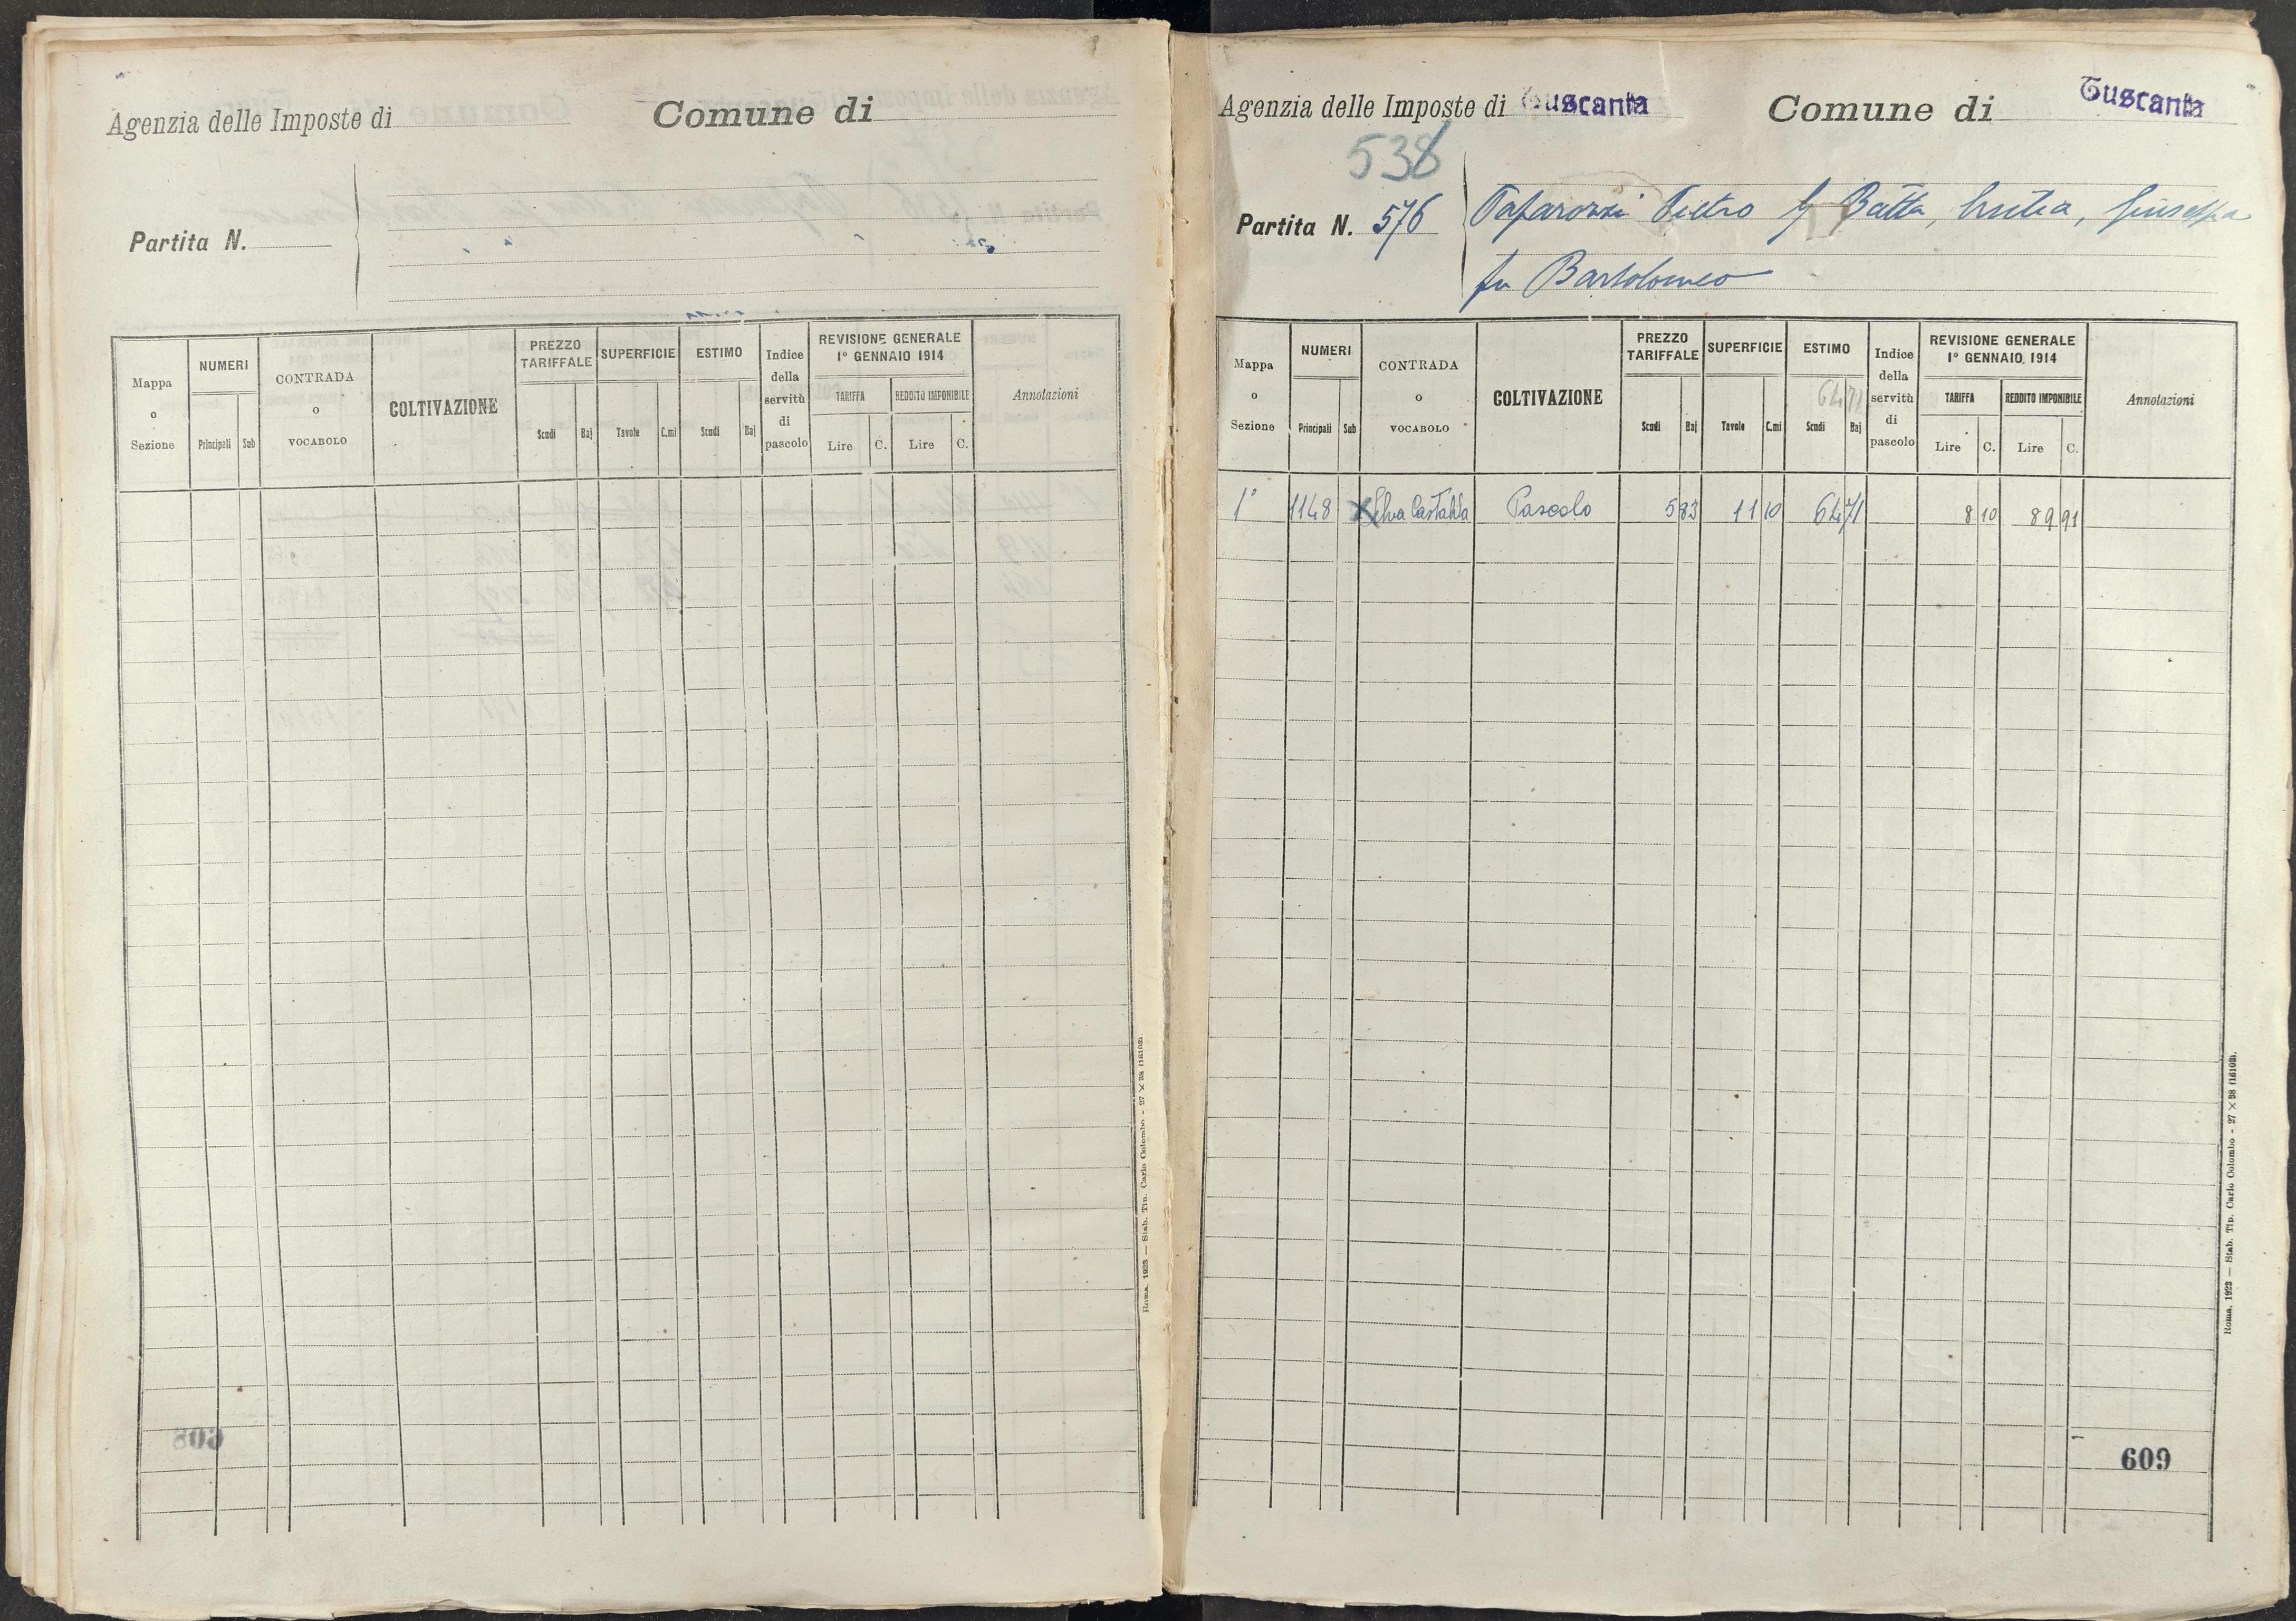 Agenzia delle Imposte di
Comune di
Partita N.
Mappa o Sezione
NUMERI
Principali
Sub
CONTRADA o VOCABOLO
COLTIVAZIONE
PREZZO TARIFFALE
Scudi
Baj
SUPERFICIE
Tavole
C.mi
ESTIMO
Scudi
Baj
Indice della servitù di pascolo
REVISIONE GENERALE
1° GENNAIO 1914
TARIFFA
REDDITO IMPONIBILE
Lire
C.
Lire
C.
Annotazioni
Roma, 1923 — Stab. Tip. Carlo Colombo - 27 × 38 (16103).
608
Agenzia delle Imposte di Tuscania
Comune di Tuscania
538
Partita N. 576
Pietro Batta, Giuseppa
fu Bartolomeo
Mappa o Sezione
NUMERI
Principali
Sub
CONTRADA o VOCABOLO
COLTIVAZIONE
PREZZO TARIFFALE
Scudi
Baj
SUPERFICIE
Tavole
C.mi
ESTIMO
6471
Scudi
Baj
Indice della servitù di pascolo
REVISIONE GENERALE
1° GENNAIO 1914
TARIFFA
REDDITO IMPONIBILE
Lire
C.
Lire
C.
Annotazioni
1° 1148 Pascolo 5 83 11 10 64 71 8 10 89 91
Roma, 1923 — Stab. Tip. Carlo Colombo - 27 × 38 (16103).
609